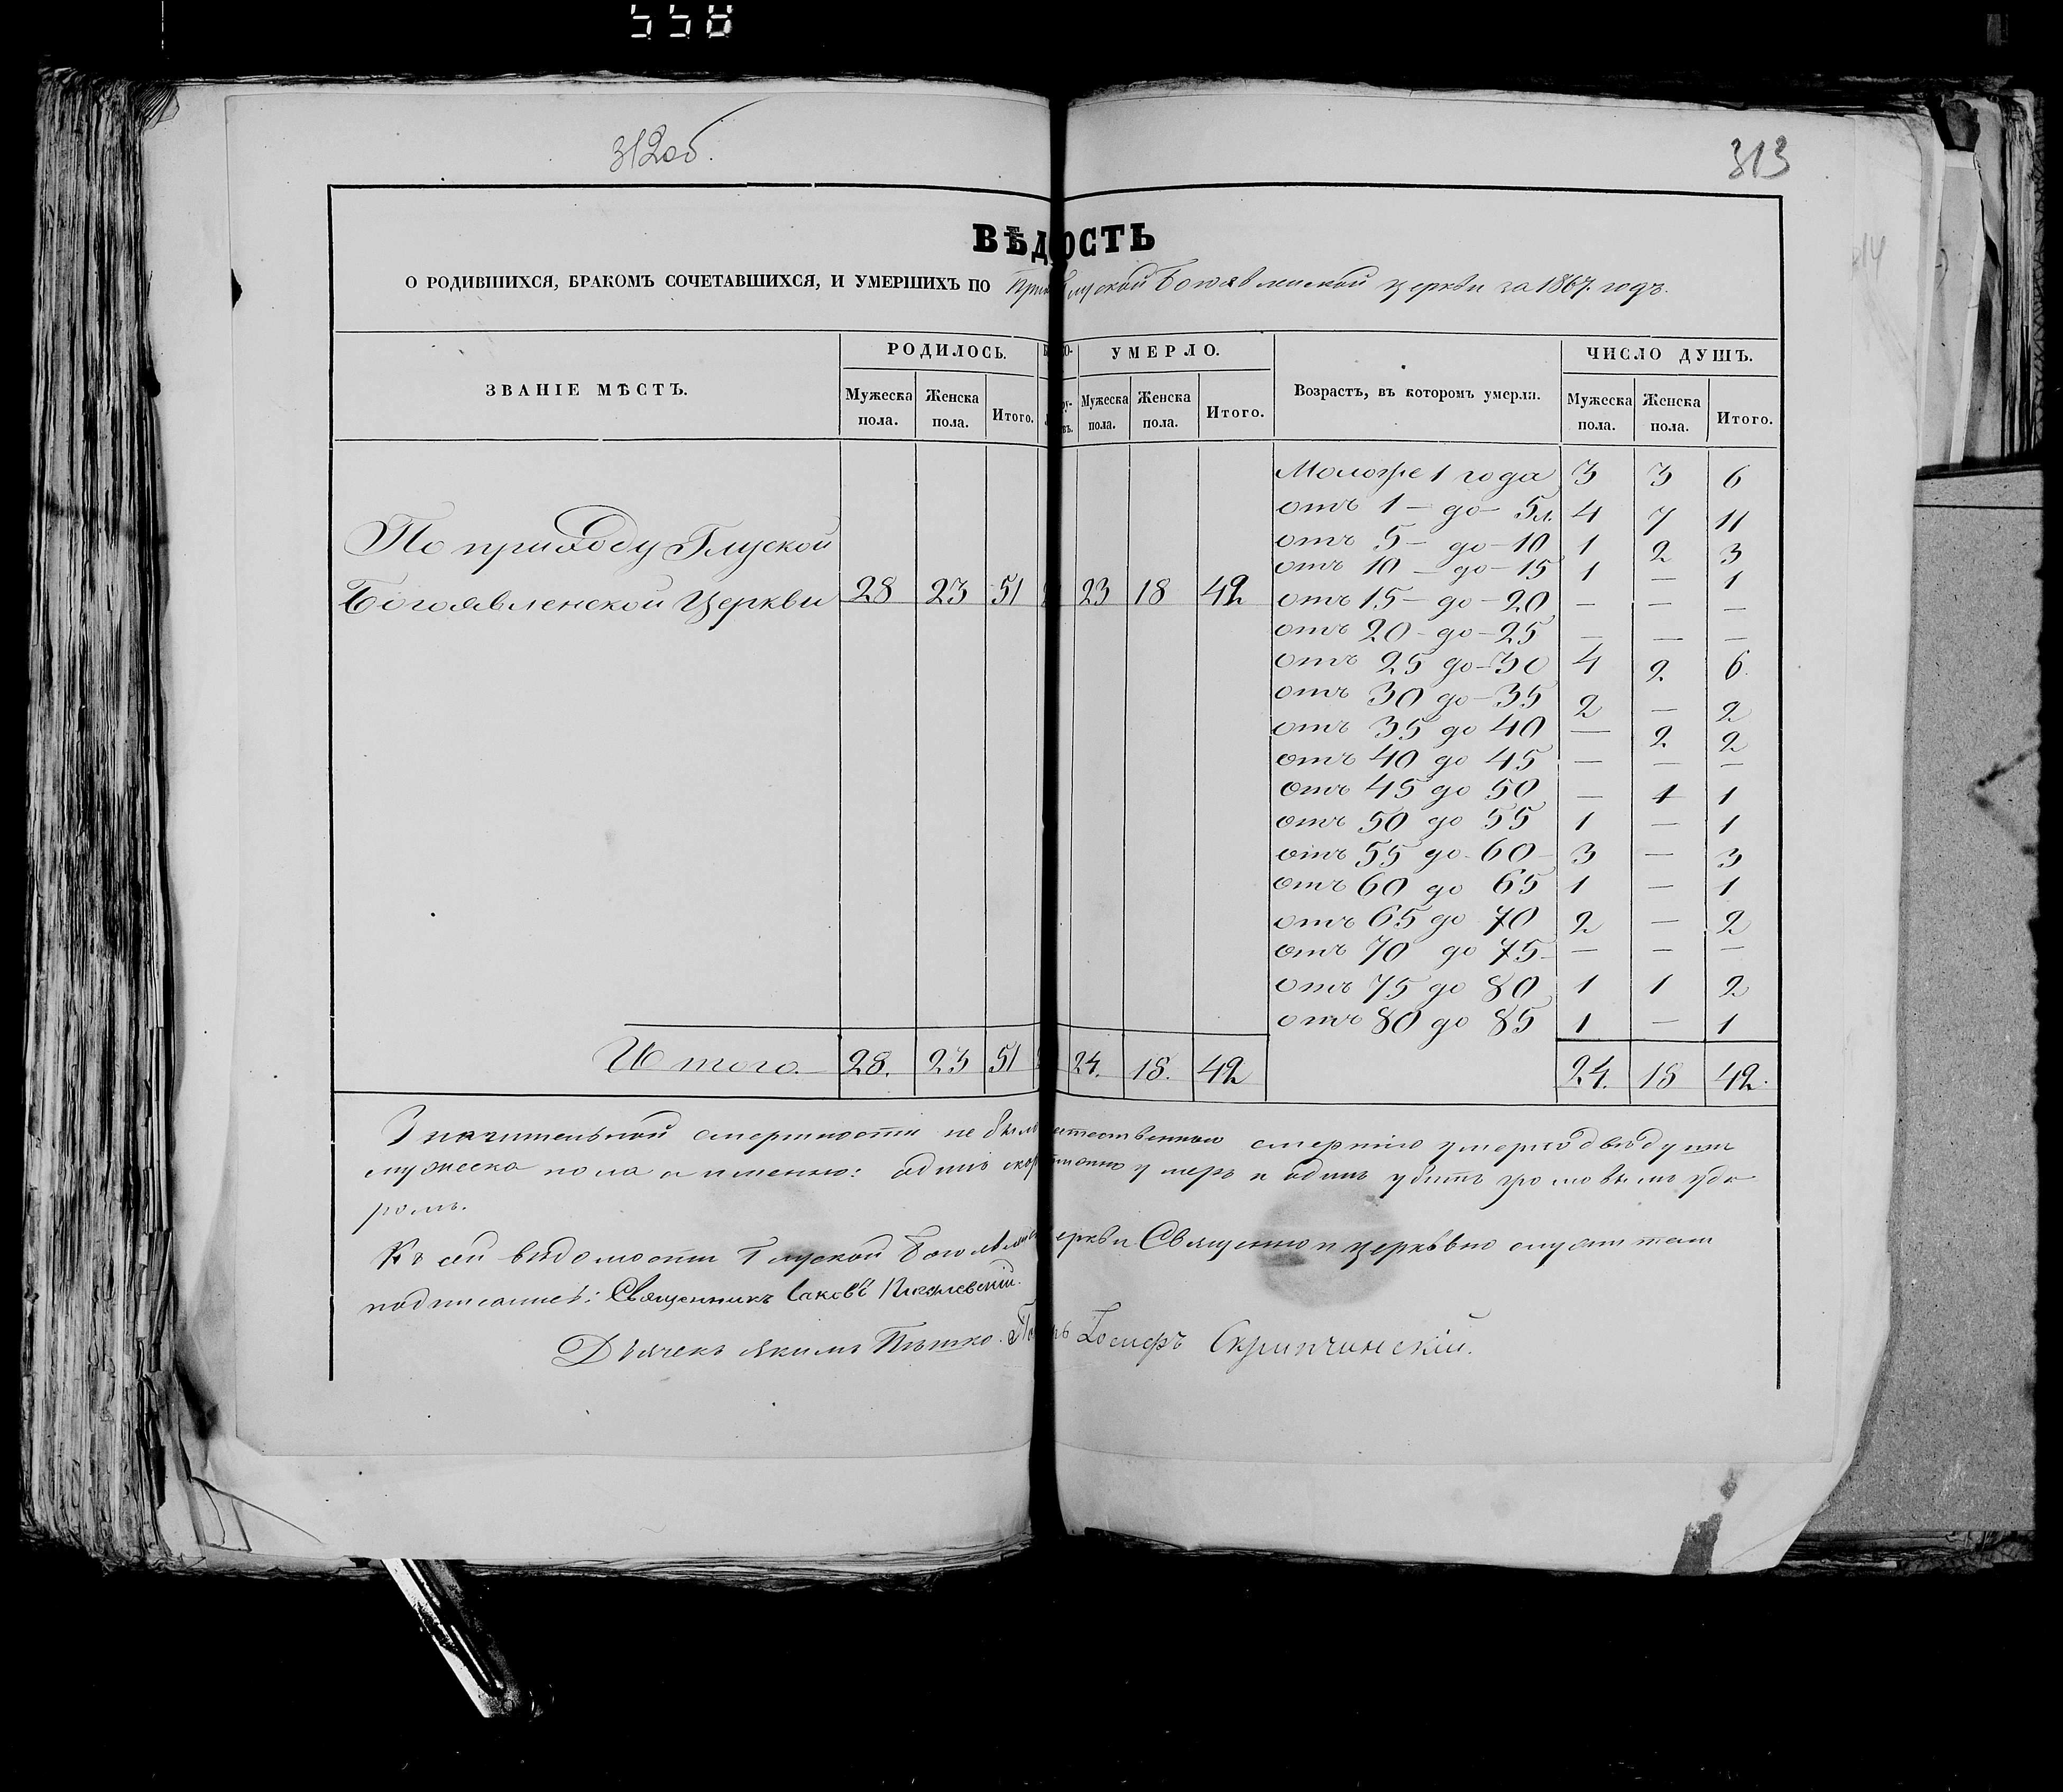 558
312об.
313
ВѢДОСТЬ
О РОДИВШИХСЯ, БРАКОМЪ СОЧЕТАВШИХСЯ, И УМЕРШИХЪ ПО Глуской Богоявленской церкви за 1867. годъ.
ЗВАНІЕ МѢСТЪ. РОДИЛОСЬ. УМЕРЛО. Возрастъ, въ которомъ умерли. ЧИСЛО ДУШЪ.
Мужеска пола. Женска пола. Итого. Мужеска пола. Женска пола. Итого. Мужеска пола. Женска пола. Итого.
Моложе 1 года 3 3 6
отъ 1 — до — 5 л. 4 7 11
отъ 5 — до — 10 1 2 3
отъ 10 — до — 15 1 — 1
По приходу Глуской
Богоявленской Церкви 28 23 51 23 18 42 отъ 15 — до — 20 — — —
отъ 20 — до — 25 — — —
отъ 25 до — 30 4 2. 6.
отъ 30 до — 35 2 — 2
отъ 35 до 40 — 2. 2
отъ 40 до 45 — — —
отъ 45 до 50 — 1 1
отъ 50 до 55 1 — 1
отъ 55 до 60 — 3 — 3
отъ 60 до 65 1 — 1
отъ 65 до 70 2 — 2
отъ 70 до 75 — — —
отъ 75 до 80 1 1 2
отъ 80 до 85 1 — 1
Итого. 28. 23 51 24. 18. 42 24. 18 42.
Значительной смертности не было смертію
мужеска пола а именно: одинъ умеръ и одинъ убитъ громовымъ уда
ромъ.
Къ сей вѣдомости Глуской Священно и церковно служители
подписались: Священникъ Іаковъ
Дьячекъ Якимъ Пышко. Іосифъ Скрипчинскій.